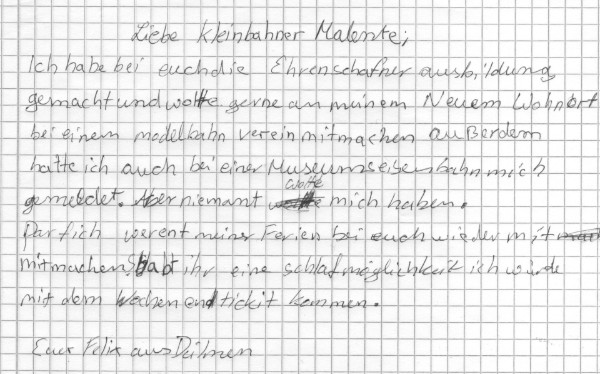 Liebe Kleinbahner Malente,
Ich habe bei euch die Ehrenschafner ausbildung
gemacht und wollte gerne an meinem Neuem Wohnort
bei einem modelbahn verein mitmachen außerdem
hatte ich auch bei einer Museumseisenbahn mich
gemeldet. Aber niemant wollte mich haben.
Darf ich werent meiner Ferien bei euch wieder mit
mitmachen. Habt ihr eine schlafmöglichkeit ich würde
mit dem Wochenendtickit kommen.
Euer Felix aus